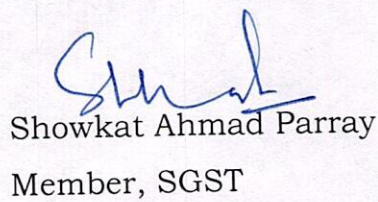 Showkat Ahmad Parray
Member, SGST